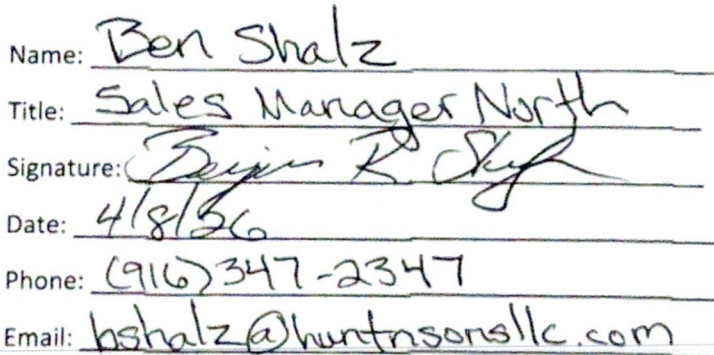 Name: Ben Shalz
Title: Sales Manager North
Signature: Benjamin R
Date: 4/8/26
Phone: (916)347-2347
Email: bshalz@huntnsonsllc.com